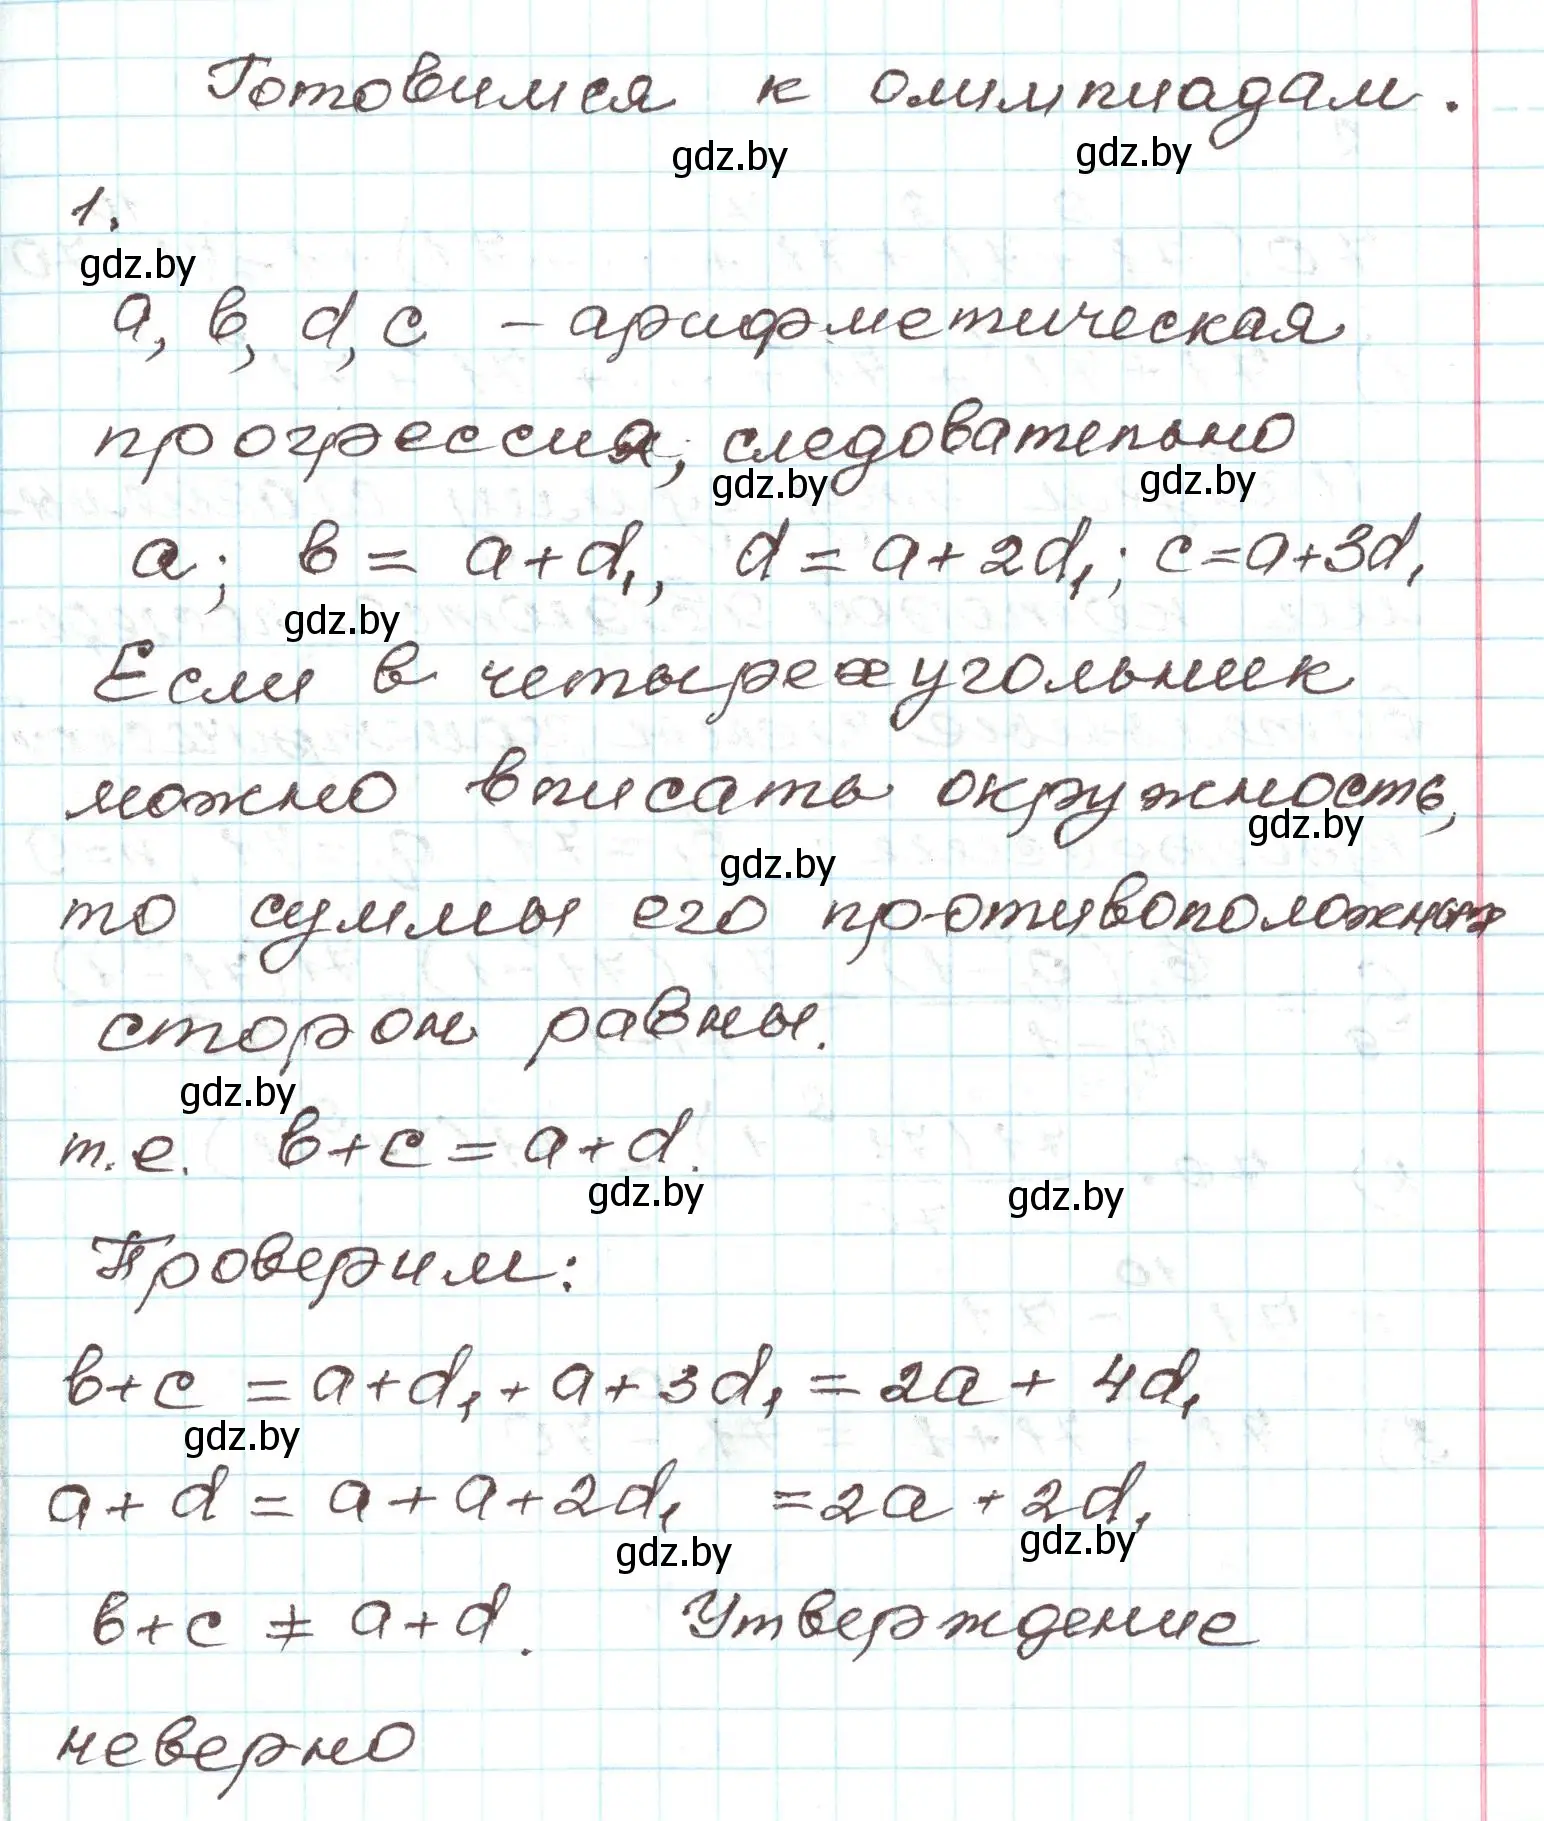 Готовимся к олимпиадам.
gdz.by gdz.by
1.
gdz.by
a, b, d, c – арифметическая
прогрессия, следовательно
gdz.by gdz.by
a; b = a+d₁, d = a+2d₁; c=a+3d₁
gdz.by
Если в четырехугольник
можно вписать окружность,
gdz.by
gdz.by
то суммы его противоположных
сторон равны.
gdz.by
т.е. b+c = a+d.
gdz.by gdz.by
Проверим:
b+c = a+d₁ + a+3d₁ = 2a + 4d₁
gdz.by
a+d = a+a+2d₁ =2a + 2d₁
gdz.by gdz.by
b+c ≠ a+d. Утверждение
неверно